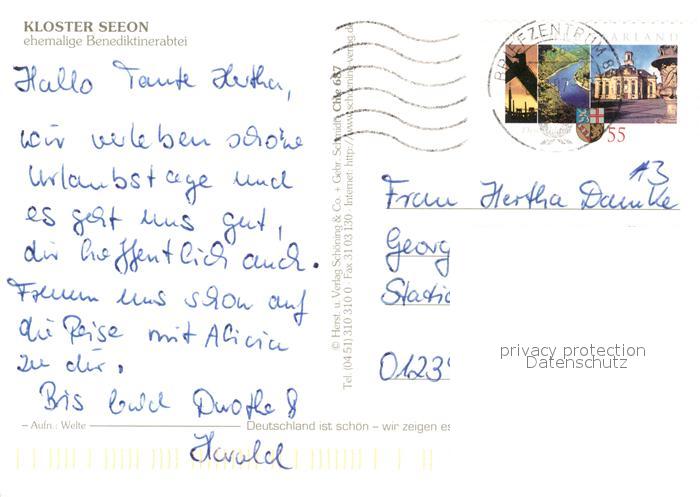 KLOSTER SEEON
ehemalige Benediktinerabtei
Hallo Tante Hertha,
wir verleben schöne
Urlaubstage und
es geht uns gut,
dir hoffentlich auch.
Freuen uns schon auf
die Reise mit Alicia
zu dir.
Bis bald Dorothe &
Harald
– Aufn.: Welte –
Deutschland ist schön – wir zeigen es
© Herst. u. Verlag Schöning & Co. + Gebr. Schmidt Che 687
Tel. (04 51) 310 310 0 · Fax 31 03 130 · Internet: http://www.schoening-verlag.de
BRIEFZENTRUM 8
SAARLAND
55
Frau Hertha Damke
Georg
Static
0123
privacy protection
Datenschutz